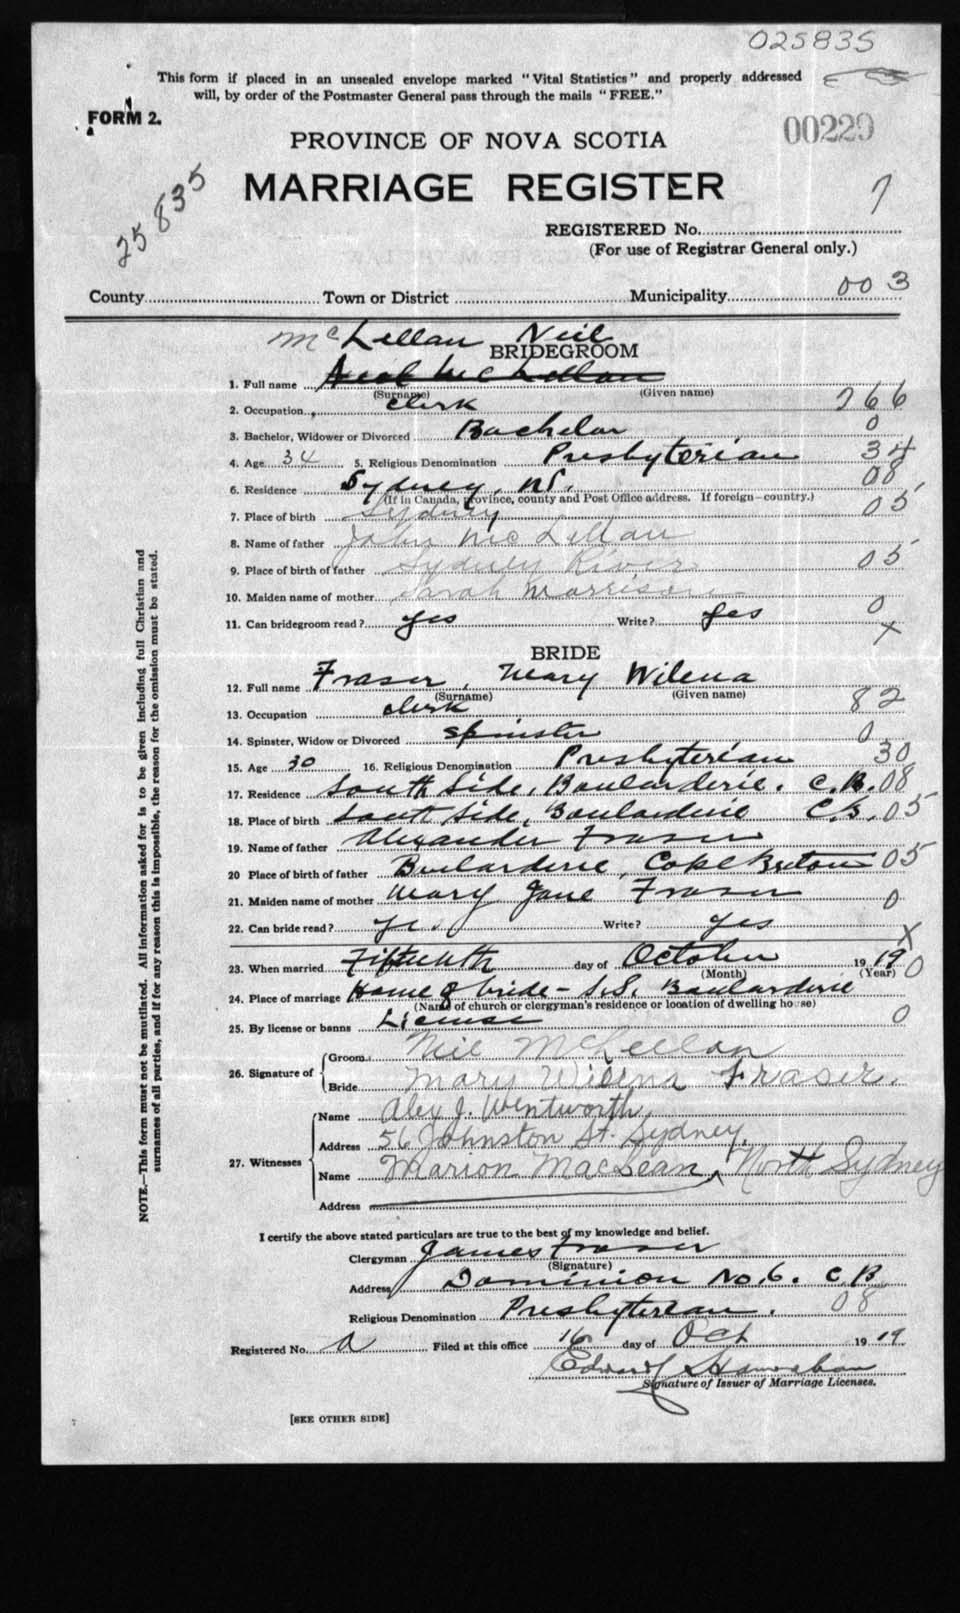 025835
This form if placed in an unsealed envelope marked "Vital Statistics" and properly addressed
will, by order of the Postmaster General pass through the mails "FREE."
FORM 2.
00229
PROVINCE OF NOVA SCOTIA
25835
MARRIAGE REGISTER
7
REGISTERED No.
(For use of Registrar General only.)
County Town or District Municipality 003
McLellan Neil
BRIDEGROOM
1. Full name Neil McLellan
(Surname) (Given name)
2. Occupation clerk 266
3. Bachelor, Widower or Divorced Bachelor 0
4. Age 34 5. Religious Denomination Presbyterian 34
6. Residence Sydney, NS. 08
(If in Canada, province, county and Post Office address. If foreign—country.)
7. Place of birth Sydney 05
8. Name of father John McLellan
9. Place of birth of father Sydney River 05
10. Maiden name of mother Sarah Morrison
11. Can bridegroom read? yes Write? yes 0
X
BRIDE
12. Full name Fraser, Mary Wilena
(Surname) (Given name)
13. Occupation clerk 82
14. Spinster, Widow or Divorced spinster 0
15. Age 30 16. Religious Denomination Presbyterian 30
17. Residence South Side, Boularderie. C.B. 08
18. Place of birth South Side, Boularderie C.B. 05
19. Name of father Alexander Fraser
20 Place of birth of father Boularderie, Cape Breton 05
21. Maiden name of mother Mary Jane Fraser 0
22. Can bride read? yes Write? yes
X
23. When married Fifteenth day of October 1919 0
(Month) (Year)
24. Place of marriage Home of bride - S.S. Boularderie
(Name of church or clergyman's residence or location of dwelling house)
25. By license or banns License 0
26. Signature of Groom Neil McLellan
Bride Mary Wilena Fraser.
27. Witnesses Name Alex J. Wentworth,
Address 56 Johnston St. Sydney.
Name Marion MacLean, North Sydney
Address
I certify the above stated particulars are true to the best of my knowledge and belief.
Clergyman James Fraser
(Signature)
Address Dominion No. 6. C.B.
Religious Denomination Presbyterian. 08
Registered No. Filed at this office 16 day of Oct 1919
Edward
Signature of Issuer of Marriage Licenses.
[SEE OTHER SIDE]
NOTE.—This form must not be mutilated. All information asked for is to be given including full Christian and
surnames of all parties, and if for any reason this is impossible, the reason for the omission must be stated.